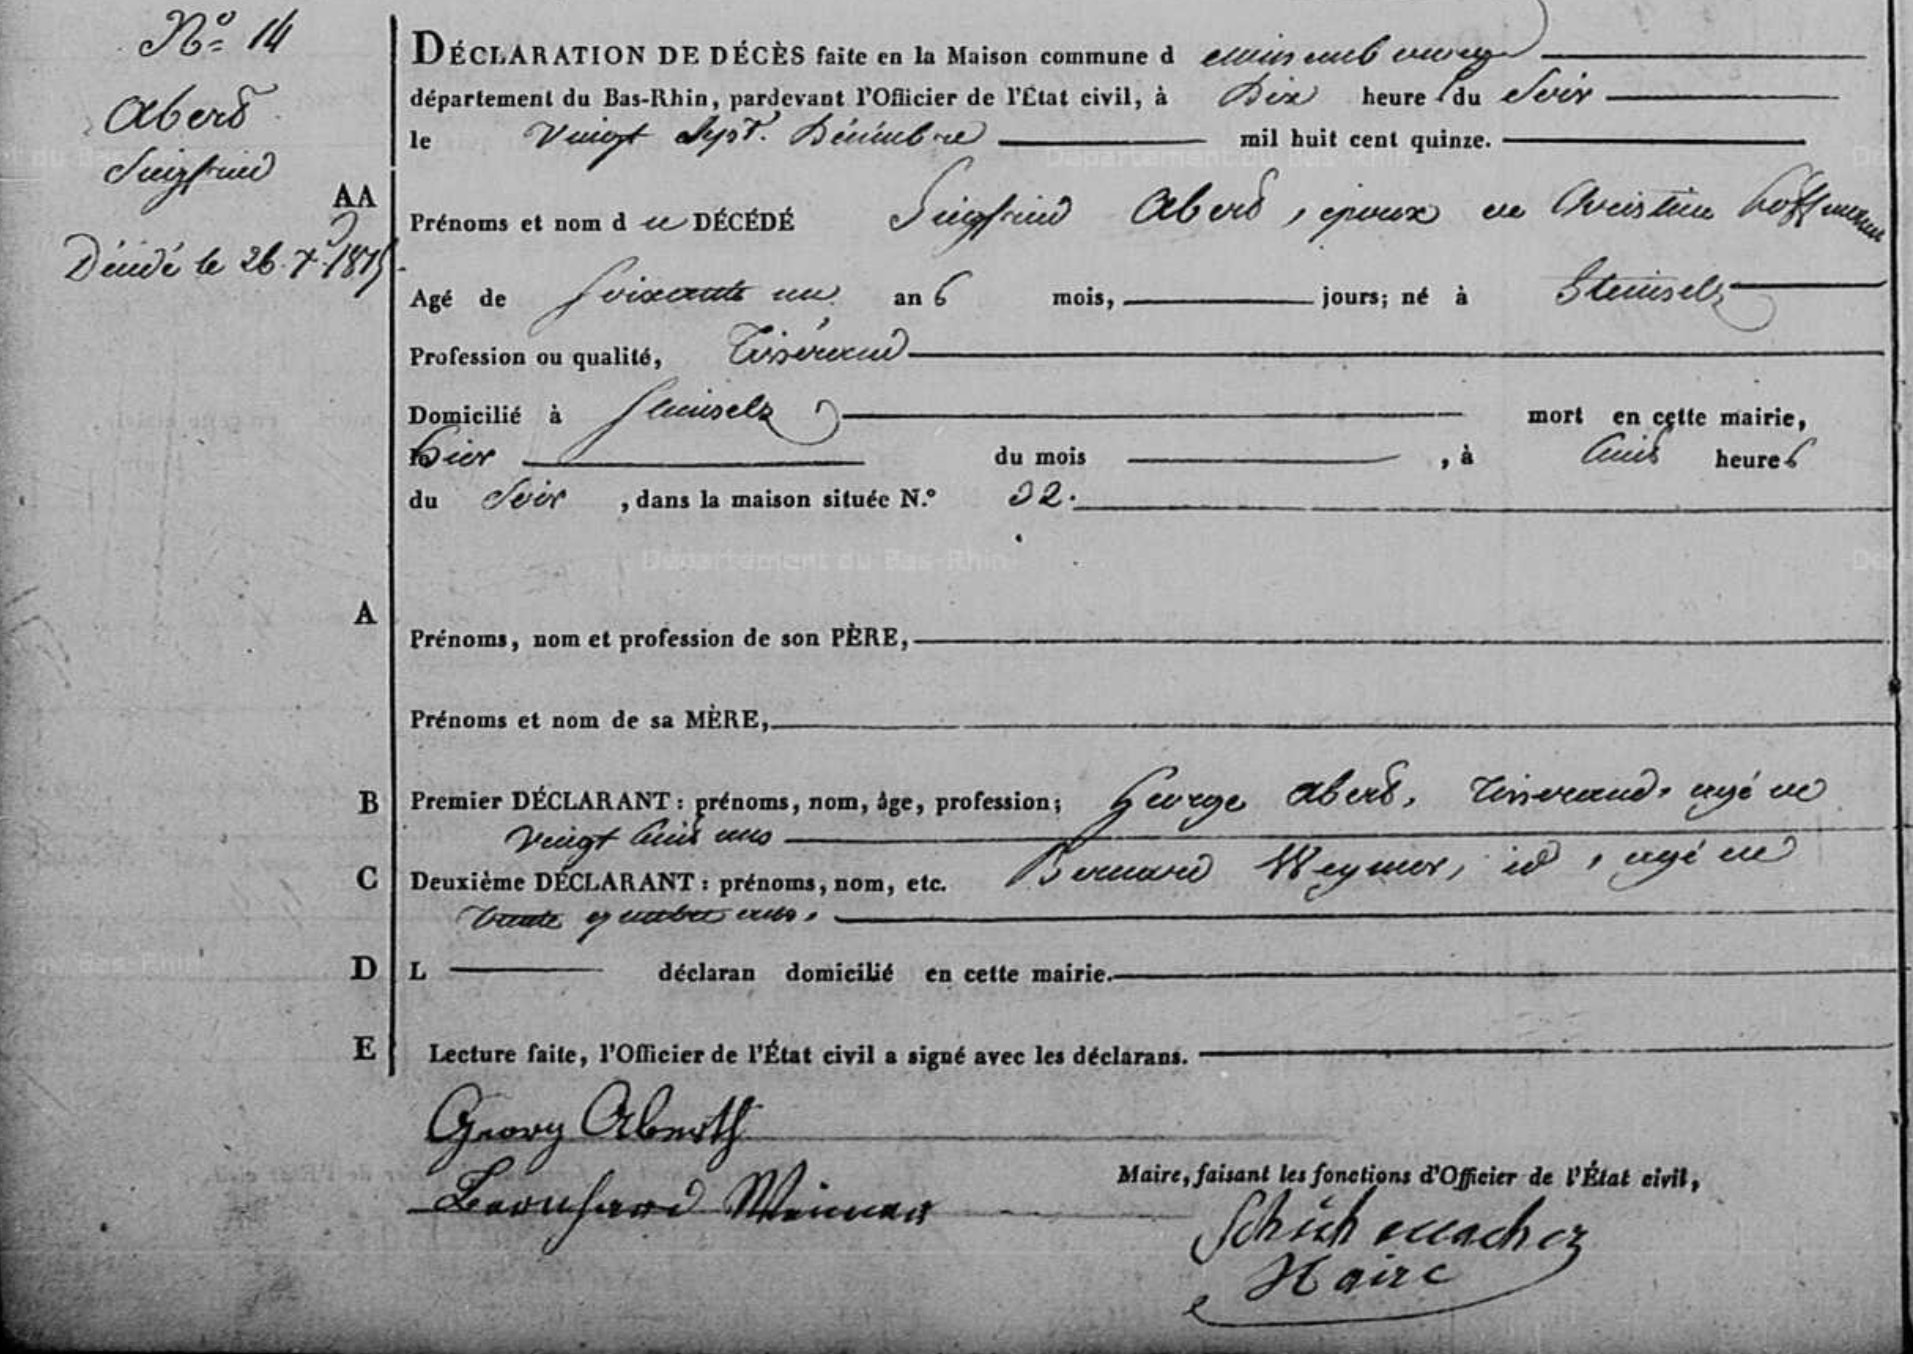 N.º 14
Aberd
Siegfried
Décédé le 26. X. 1815
DÉCLARATION DE DÉCÈS faite en la Maison commune d
département du Bas-Rhin, pardevant l'Officier de l'État civil, à Dix heure du Soir
le Vingt Sept. Décembre mil huit cent quinze.
AA
Prénoms et nom d u DÉCÉDÉ Siegfried Aberd, époux de Christine Hoffmann
Agé de soixante un an 6 mois, jours; né à Steinselz
Profession ou qualité, Tisserand
Domicilié à Steinselz mort en cette mairie,
hier du mois , à heures
du Soir , dans la maison située N.º 32.
A
Prénoms, nom et profession de son PÈRE,
Prénoms et nom de sa MÈRE,
B Premier DÉCLARANT : prénoms, nom, âge, profession; George Aberd, Tisserand, agé de
vingt huit ans
C Deuxième DÉCLARANT : prénoms, nom, etc. Bernard Weymer, id, agé de
trente quatre ans.
D L déclaran domicilié en cette mairie.
E Lecture faite, l'Officier de l'État civil a signé avec les déclarans.
Georg Aberth
Bernhard Weimer
Maire, faisant les fonctions d'Officier de l'État civil,
Schuhmacher
Maire
Département du Bas-Rhin